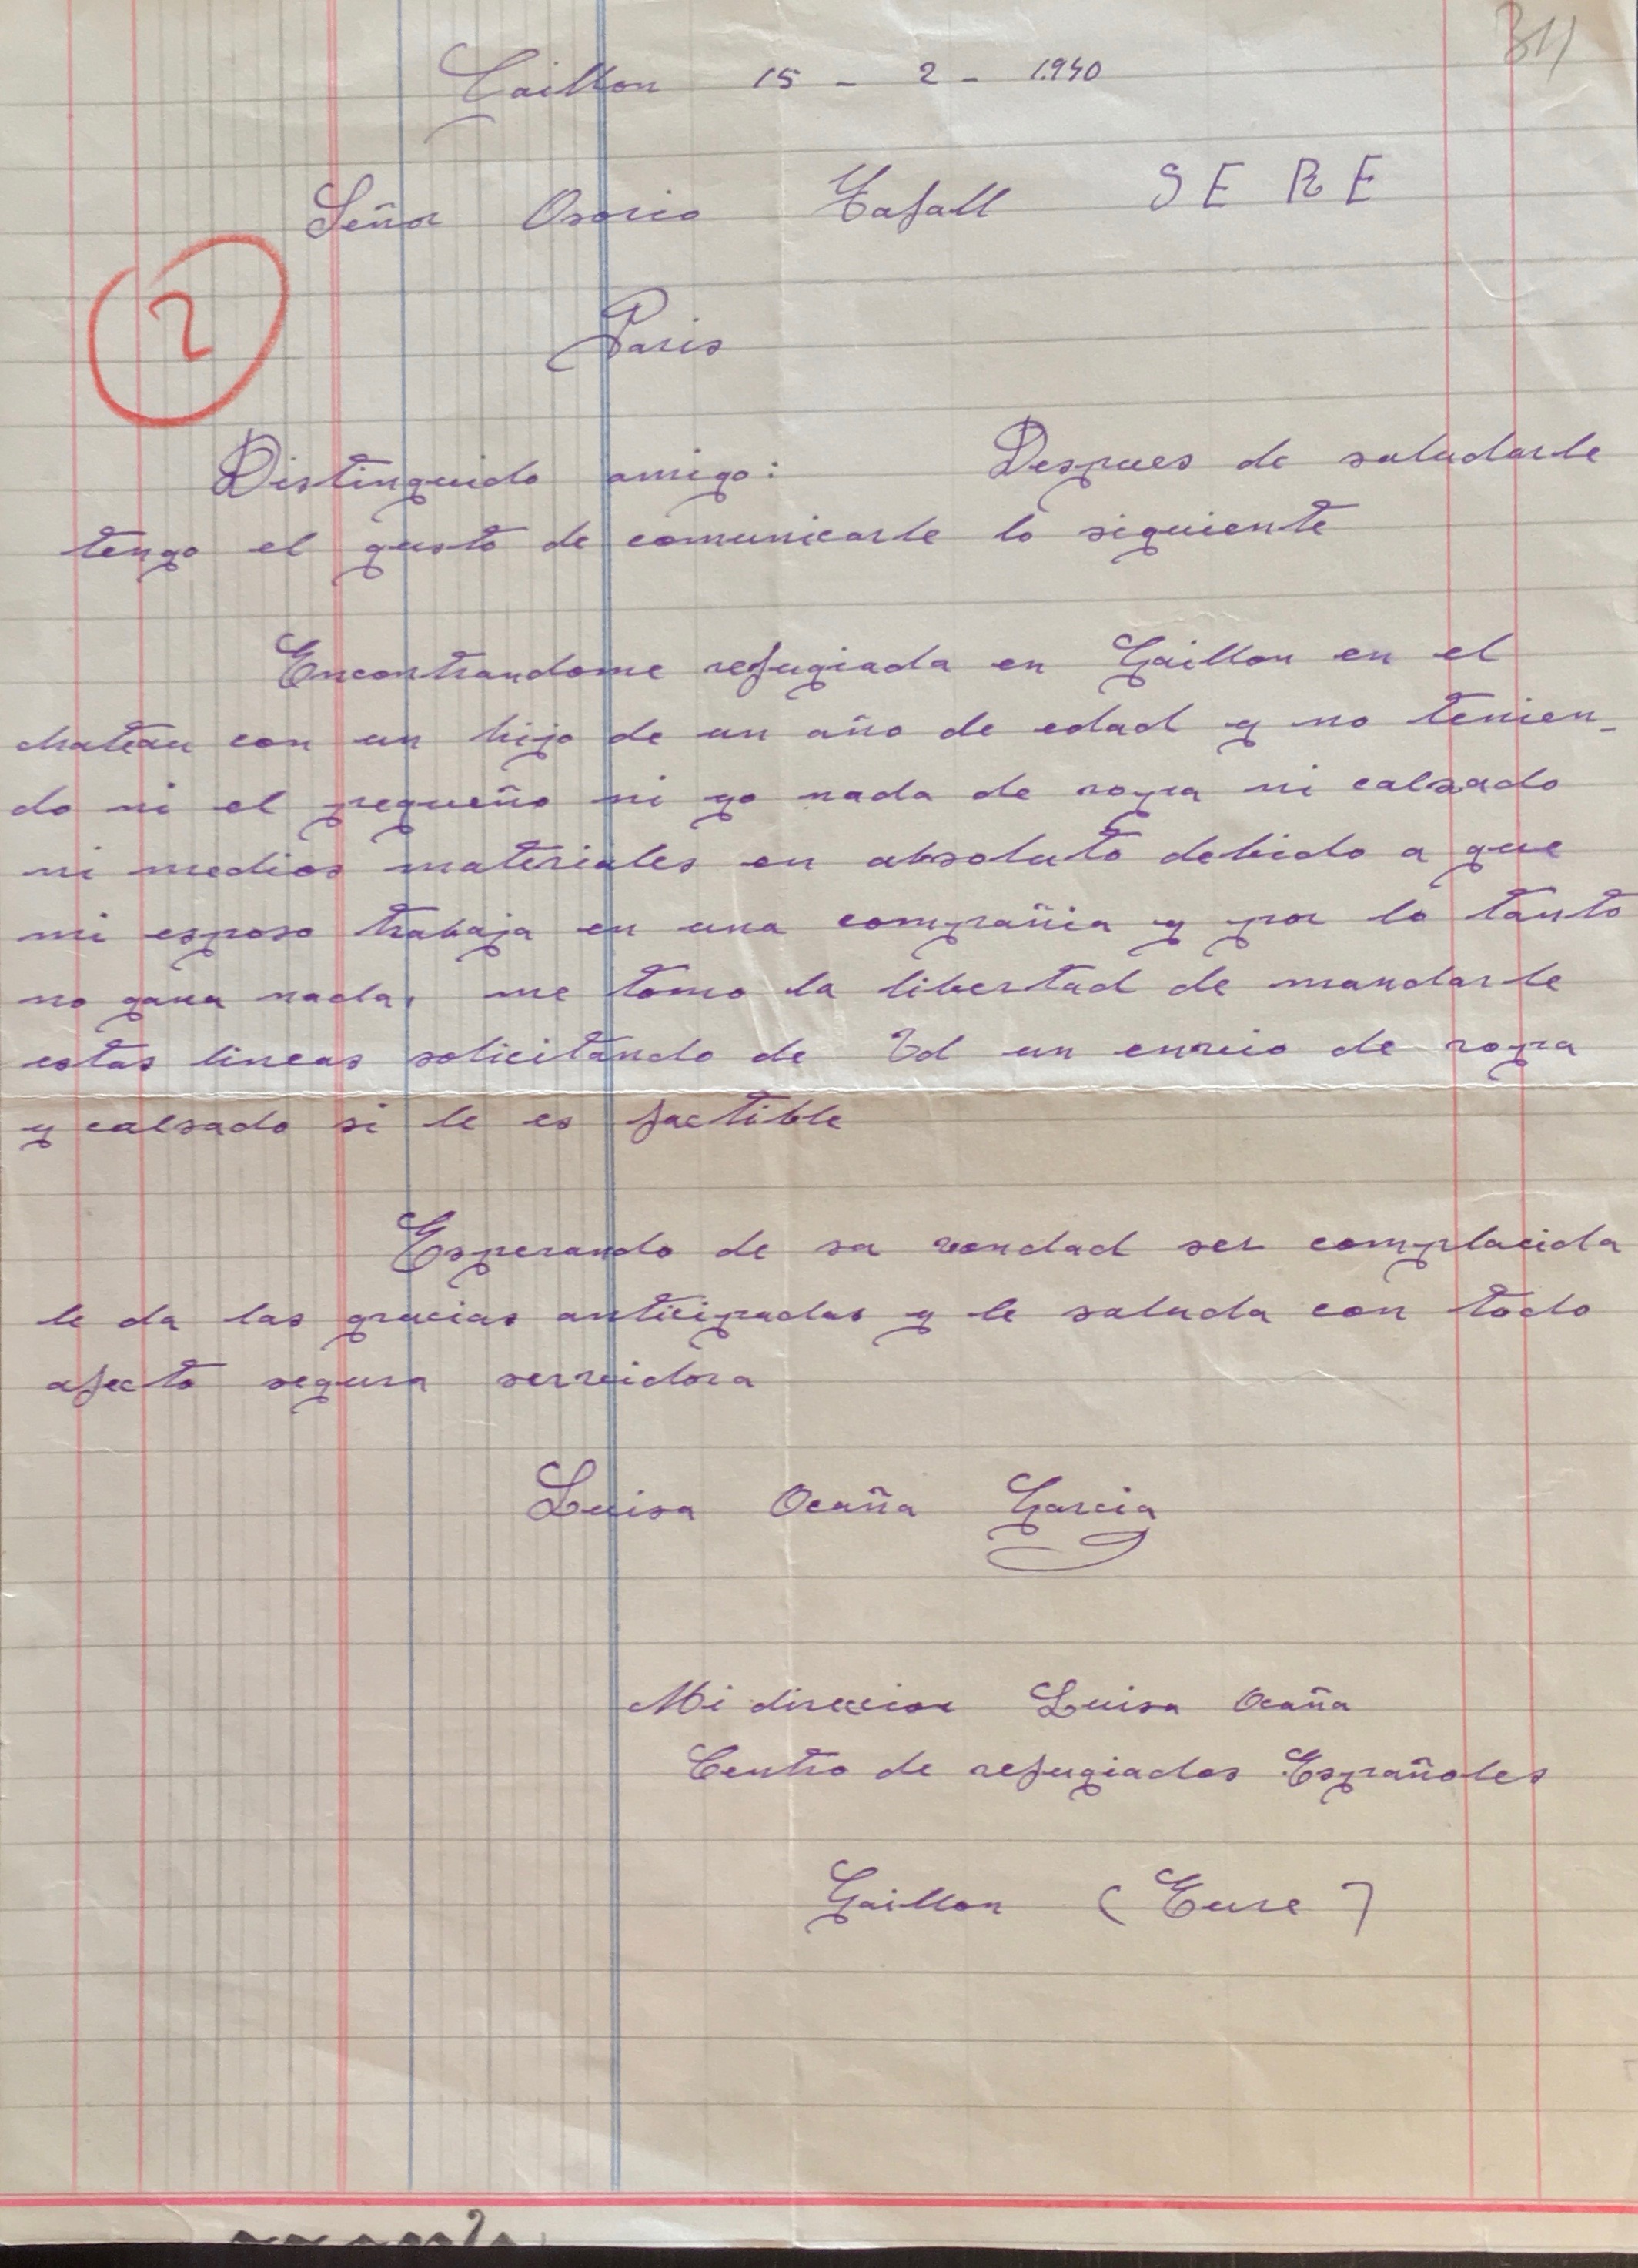 311
Gaillon 15 - 2 - 1.940
Señor Osorio Tafall SERE
2
Paris
Distinguido amigo: Despues de saludarle
tengo el gusto de comunicarle lo siguiente
Encontrandome refugiada en Gaillon en el
chateau con un hijo de un año de edad y no tenien-
do ni el pequeño ni yo nada de ropa ni calsado
ni medios materiales en absoluto debido a que
mi esposo trabaja en una compañia y por lo tanto
no gana nada, me tomo la libertad de mandarle
estas lineas solicitando de Vd un envio de ropa
y calsado si le es factible
Esperando de su vondad ser complacida
le da las gracias anticipadas y le saluda con todo
afecto segura servidora
Luisa Ocaña Garcia
Mi direccion Luisa Ocaña
Centro de refugiados Españoles
Gaillon (Eure)